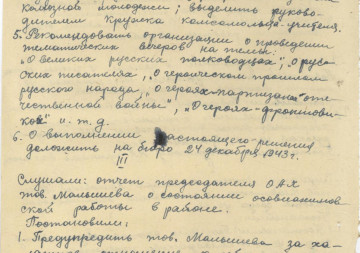 колхозной молодежи; выделить руково-
дителем кружка комсомольца-учителя.
5. Рекомендовать организации о проведении
тематических вечеров на темы:
"О великих русских полководцах", о рус-
ских писателях, "О героическом прошлом
русского народа", "О героях-партизанах оте-
чественной войны", "О героях-фронтови-
ках" и т.д.
6. О выполнении настоящего решения
доложить на бюро 24 декабря 1943 г.
III
Слушали: отчет председателя ОАХ
тов. Малышева о состоянии осоавиахимов-
ской работы в районе.
Постановили:
1. Предупредить тов. Малышева за ха-